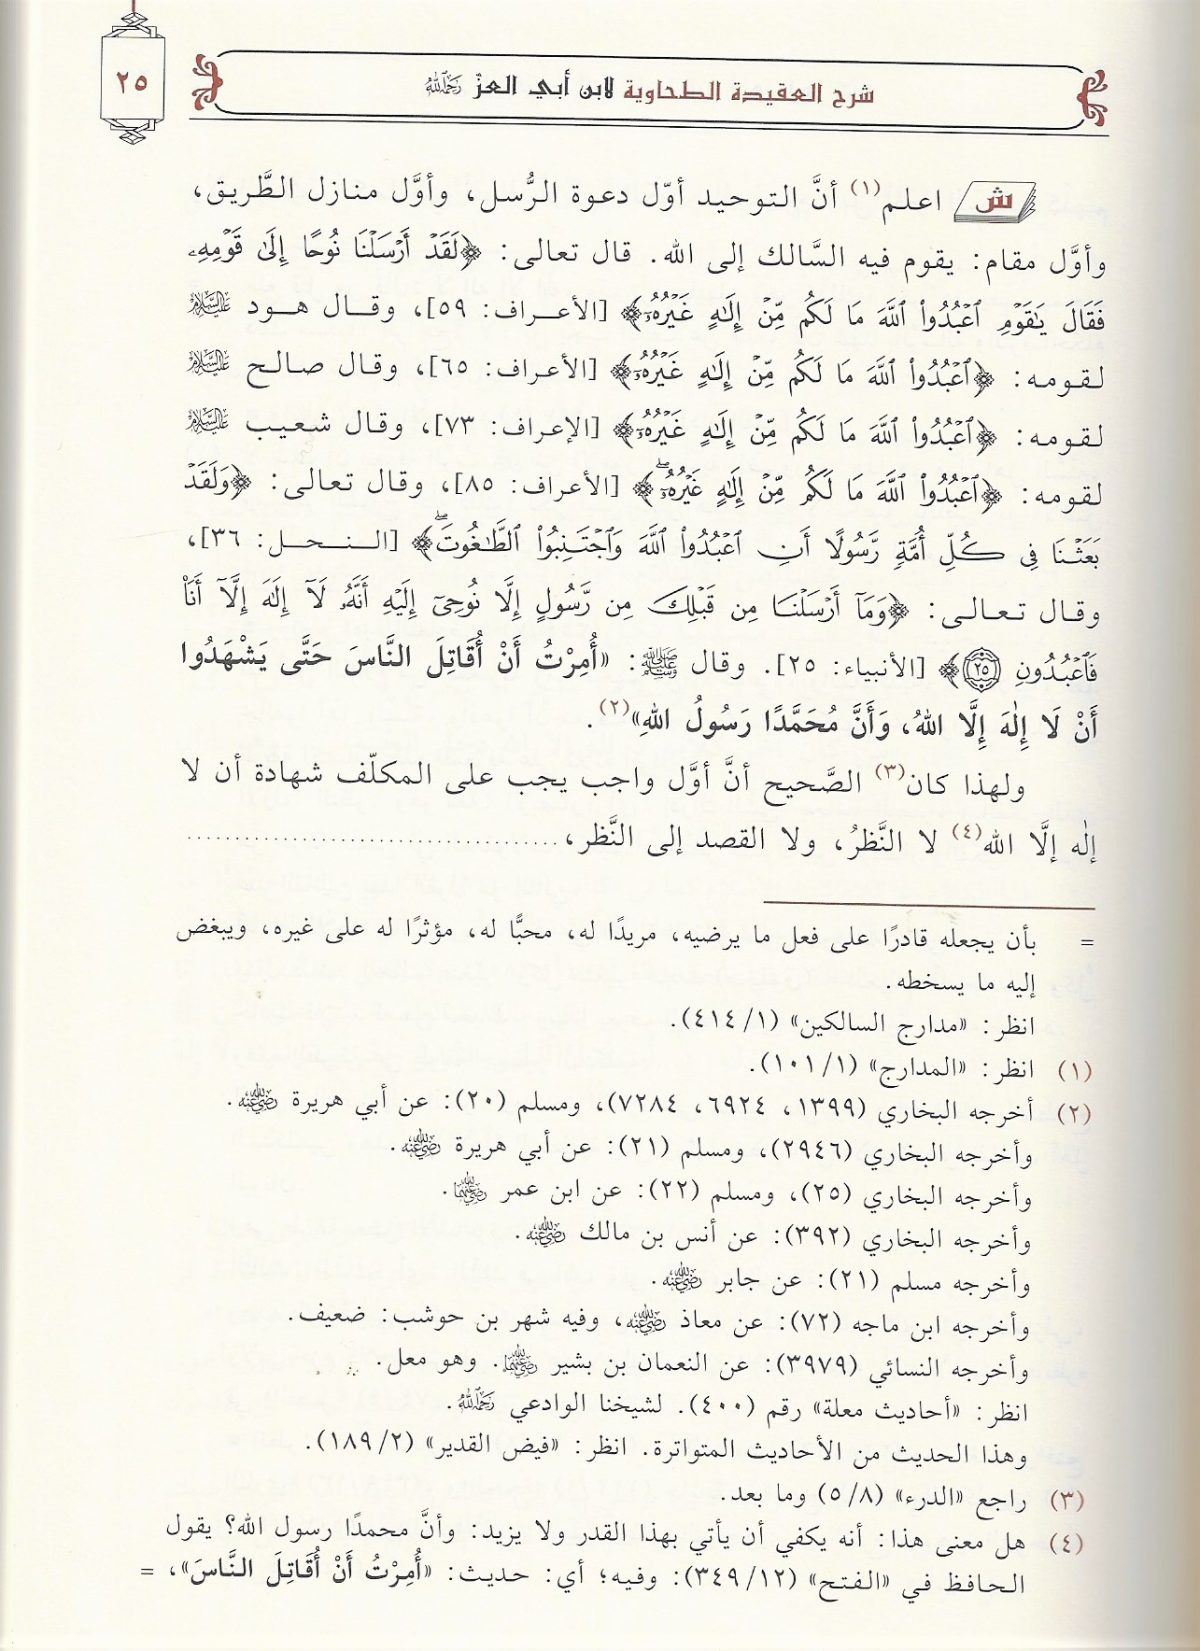 ٢٥
شرح العقيدة الطحاوية لابن أبي العزّ رَحِمَهُ اللهُ
ش اعلم(١) أنَّ التوحيد أوّل دعوة الرُّسل، وأوَّل منازل الطَّريق،
وأوَّل مقام: يقوم فيه السَّالك إلى الله. قال تعالى: ﴿لَقَدْ أَرْسَلْنَا نُوحًا إِلَىٰ قَوْمِهِۦ
فَقَالَ يَٰقَوْمِ ٱعْبُدُوا۟ ٱللَّهَ مَا لَكُم مِّنْ إِلَٰهٍ غَيْرُهُۥ﴾ [الأعراف: ٥٩]، وقال هود عَلَيْهِ السَّلَامُ
لقومه: ﴿ٱعْبُدُوا۟ ٱللَّهَ مَا لَكُم مِّنْ إِلَٰهٍ غَيْرُهُۥ﴾ [الأعراف: ٦٥]، وقال صالح عَلَيْهِ السَّلَامُ
لقومه: ﴿ٱعْبُدُوا۟ ٱللَّهَ مَا لَكُم مِّنْ إِلَٰهٍ غَيْرُهُۥ﴾ [الإعراف: ٧٣]، وقال شعيب عَلَيْهِ السَّلَامُ
لقومه: ﴿ٱعْبُدُوا۟ ٱللَّهَ مَا لَكُم مِّنْ إِلَٰهٍ غَيْرُهُۥۖ﴾ [الأعراف: ٨٥]، وقال تعالى: ﴿وَلَقَدْ
بَعَثْنَا فِى كُلِّ أُمَّةٍ رَّسُولًا أَنِ ٱعْبُدُوا۟ ٱللَّهَ وَٱجْتَنِبُوا۟ ٱلطَّٰغُوتَۖ﴾ [النحل: ٣٦]،
وقال تعالى: ﴿وَمَآ أَرْسَلْنَا مِن قَبْلِكَ مِن رَّسُولٍ إِلَّا نُوحِىٓ إِلَيْهِ أَنَّهُۥ لَآ إِلَٰهَ إِلَّآ أَنَا۠
فَٱعْبُدُونِ ٢٥﴾ [الأنبياء: ٢٥]. وقال ﷺ: «أُمِرْتُ أَنْ أُقَاتِلَ النَّاسَ حَتَّى يَشْهَدُوا
أَنْ لَا إِلٰهَ إِلَّا اللهُ، وَأَنَّ مُحَمَّدًا رَسُولُ اللهِ»(٢).
ولهذا كان(٣) الصَّحيح أنَّ أوَّل واجب يجب على المكلّف شهادة أن لا
إلٰه إلَّا الله(٤) لا النَّظرُ، ولا القصد إلى النَّظر، ......................................
= بأن يجعله قادرًا على فعل ما يرضيه، مريدًا له، محبًّا له، مؤثرًا له على غيره، ويبغض
إليه ما يسخطه.
انظر: «مدارج السالكين» (٤١٤/١).
(١) انظر: «المدارج» (١٠١/١).
(٢) أخرجه البخاري (١٣٩٩، ٦٩٢٤، ٧٢٨٤)، ومسلم (٢٠): عن أبي هريرة رضي الله عنه.
وأخرجه البخاري (٢٩٤٦)، ومسلم (٢١): عن أبي هريرة رضي الله عنه.
وأخرجه البخاري (٢٥)، ومسلم (٢٢): عن ابن عمر رضي الله عنهما.
وأخرجه البخاري (٣٩٢): عن أنس بن مالك رضي الله عنه.
وأخرجه مسلم (٢١): عن جابر رضي الله عنه.
وأخرجه ابن ماجه (٧٢): عن معاذ رضي الله عنه، وفيه شهر بن حوشب: ضعيف.
وأخرجه النسائي (٣٩٧٩): عن النعمان بن بشير رضي الله عنهما. وهو معل.
انظر: «أحاديث معلة» رقم (٤٠٠). لشيخنا الوادعي رَحِمَهُ اللهُ.
وهذا الحديث من الأحاديث المتواترة. انظر: «فيض القدير» (١٨٩/٢).
(٣) راجع «الدرء» (٥/٨) وما بعد.
(٤) هل معنى هذا: أنه يكفي أن يأتي بهذا القدر ولا يزيد: وأنَّ محمدًا رسول الله؟ يقول
الحافظ في «الفتح» (٣٤٩/١٢): وفيه؛ أي: حديث: «أُمِرْتُ أَنْ أُقَاتِلَ النَّاسَ»، =